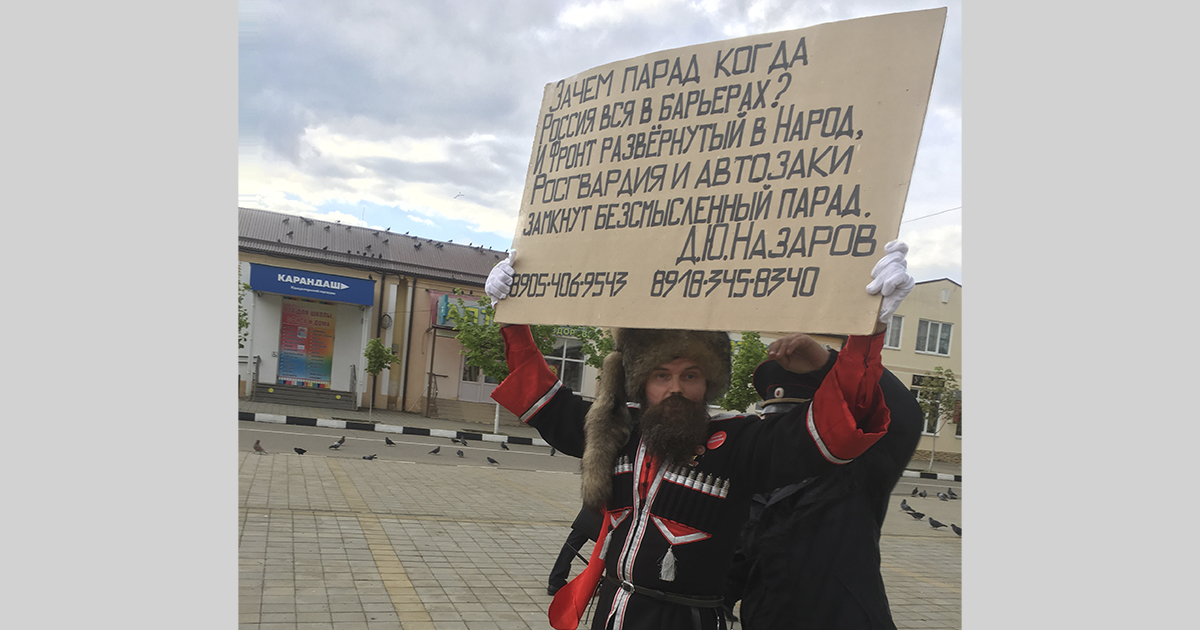 ЗАЧЕМ ПАРАД КОГДА
РОССИЯ ВСЯ В БАРЬЕРАХ?
И ФРОНТ РАЗВЁРНУТЫЙ В НАРОД,
РОСГВАРДИЯ И АВТОЗАКИ
ЗАМКНУТ БЕЗСМЫСЛЕННЫЙ ПАРАД.
Д.Ю.НАЗАРОВ
8905-406-9543 8918-345-8340
КАРАНДАШ
ДЛЯ ШКОЛЫ